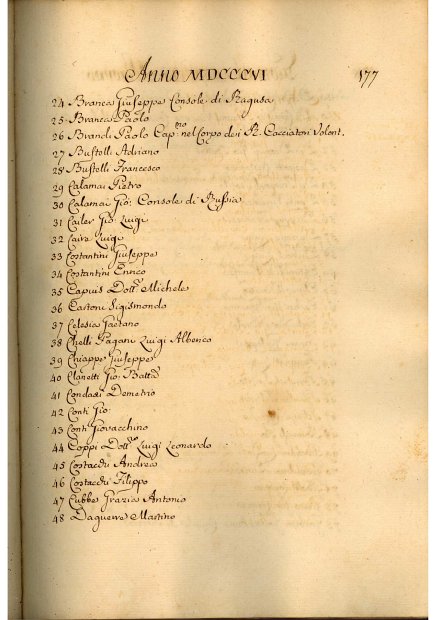 Anno MDCCCVI 177
24 Branca Giuseppe Console di Ragusa
25 Branca Paolo
26 Brandi Paolo Cap:no nel Corpo dei R. Cacciatori Volont.
27 Bustelli Adriano
28 Bustelli Francesco
29 Calamai Pietro
30 Calamai Gio: Console di Russia
31 Cailer Gio: Luigi
32 Caire Luigi
33 Costantini Giuseppe
34 Costantini Enrico
35 Capuis Dott. Michele
36 Castoni Sigismondo
37 Celesia Gaetano
38 Chelli Pagani Luigi Alberico
39 Chiappe Giuseppe
40 Gio: Batta
41 Demetrio
42 Conti Gio:
43 Conti Giovacchino
44 Coppi Dott. Luigi Leonardo
45 Andrea
46 Filippo
47 Cubbe Grazia Antonio
48 Daguerre Martino